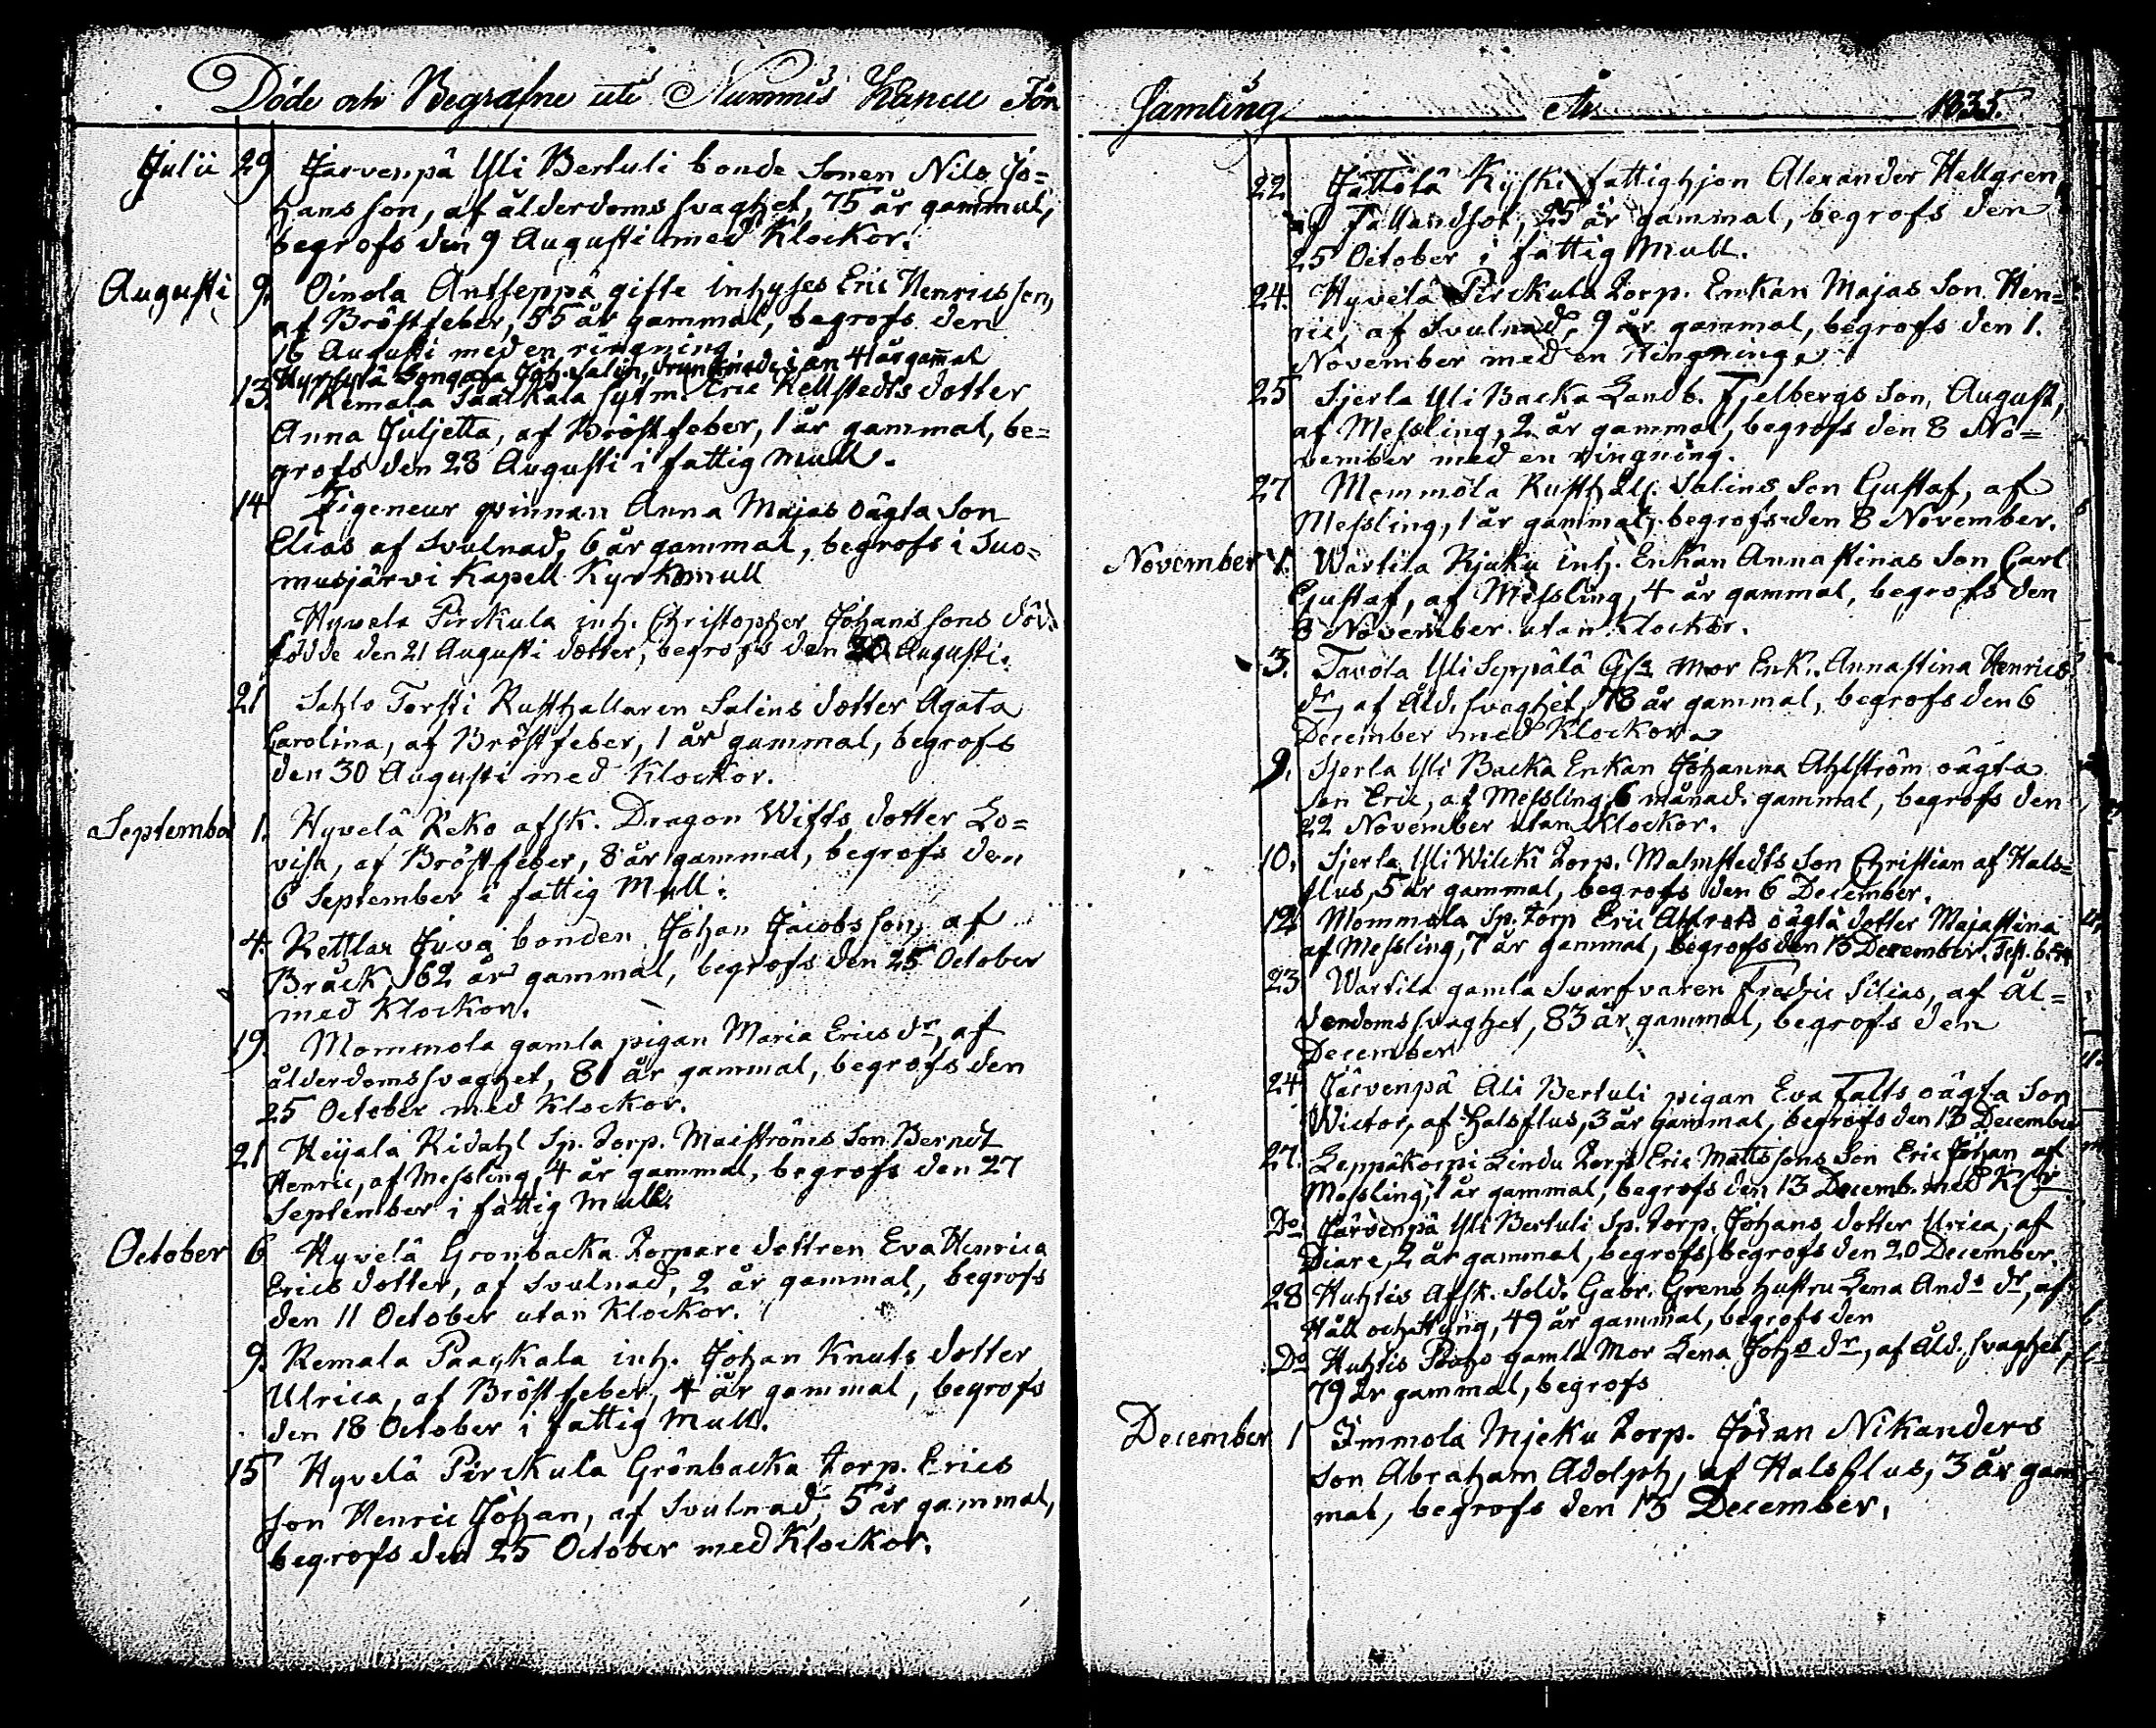 Döde och Begrafne uti Nummis Kapell För
Julii 29 Järvenpä Yli Bertuli bonde Sonen Nils Jo=
hansson, af ålderdoms svaghet, 75 år gammal,
begrofs den 9 Augusti med Klockor.
Augusti 9. Oinola Antseppä gifte inhyses Eric Henricsson,
af Bröstfeber, 55 år gammal, begrofs den
16 Augusti med en ringning
Joh. Salin, drunknade i ån 41 år gammal
13. Remala sytm. Eric Kellstedts dotter
Anna Juljetta, af Bröstfeber, 1 år gammal, be=
grofs den 23 Augusti i fattig Mull.
14 Zigeneur qvinnan Anna Majas oägta Son
Elias af Svulnad, 6 år gammal, begrofs i Suo=
musjärvi Kapell Kyrkomull
Hyvelä Pirckula inh. Christopher Johanssons död
födde den 21 Augusti dotter, begrofs den 30 Augusti.
21 Sahlo Torsti Rusthallaren Salins dotter Agata
Carolina, af Bröstfeber, 1 år gammal, begrofs
den 30 Augusti med Klockor.
September 1. Hyvelä Keko afsk. Dragon Wifts dotter Lo=
visa, af Bröstfeber, 8 år gammal, begrofs den
6 September i fattig Mull.
4. Rettlax Juva bonden Johan Jacobsson, af
Bråck, 62 år gammal, begrofs den 25 October
med Klockor.
19. Mommola gamla pigan Maria Erics dr, af
ålderdomssvaghet, 81 år gammal, begrofs den
25 October med Klockor.
21 Heijala Ridahl Sp. Torp. Maiströms Son Berndt
Henric, af Messling, 4 år gammal, begrofs den 27
September i fattig Mull.
October 6 Hyvelä Grönbacka Torpare dottren Eva Henrica
Ericsdotter, af Svulnad, 2 år gammal, begrofs
den 11 October utan Klockor.
9. Remala Paackala inh. Johan Knuts dotter
Ulrica, af Bröstfeber, 4 år gammal, begrofs
den 18 October i fattig Mull.
15 Hyvelä Pirckula Grönbacka torp. Erics
Son Henric Johan, af Svulnad, 5 år gammal,
begrofs den 25 October med Klockor.
Samling År 1835.
22 Jättölä Kyski fattighjon Alexander Hellgren
af Fallandsot, 25 år gammal, begrofs den
25 October i fattig Mull.
24. Hyvelä Pirckula Torp. Enkan Majas Son Hen=
ric, af Svulnad, 9 år gammal, begrofs den 1.
November med en Ringning.
25 Sjerla Yli Backa Landb. Fjelbergs Son, August,
af Messling, 2 år gammal, begrofs den 8 No=
vember med en ringning.
27 Mommola Rusthåll. Salins Son Gustaf, af
Messling, 1 år gammal, begrofs den 8 November.
November 1. Wartila Rjuku inh. Enkan Annastinas Son Carl
Gustaf, af Messling, 4 år gammal, begrofs den
8 November utan Klockor.
3. Tavola Yli Seppälä mor Enk. Annastina Henrics
dr, af Åld. svaghet, 78 år gammal, begrofs den 6
December med Klockor
9. Sjerla Yli Backa Enkan Johanna Ahlström oägta
Son Eric, af Messling, 6 månad. gammal, begrofs den
22 November utan Klockor.
10. Sjerla Yli Wilcki Torp. Malmstedts Son Christian af Hals=
flus, 5 år gammal, begrofs den 6 December.
12. Mommola Sp. torp Eric oägta dotter Majastina
af Messling, 7 år gammal, begrofs den 13 December.
23 Wartila gamla Svarfvaren Fredric Silias, af Ål=
derdomssvaghet, 83 år gammal, begrofs den
December
24 Järvenpä Ali Bertuli pigan Eva Falts oägta Son
Wictor, af halsflus, 3 år gammal, begrofs den 13 December
27. Leppäkorpi Lindu Torp. Eric Mattssons Son Eric Johan af
Messling, 1 år gammal, begrofs den 13 Decemb. med
Do Järvenpä Yli Bertuli Sp. torp. Johans dotter Ulrica, af
Diare, 2 år gammal, begrofs, begrofs den 20 December.
28 Huhtis Afsk. Sold. Gabr. Grens hustru Lena Ands dr, af
Håll och styng, 49 år gammal, begrofs den
Do Huhtis gamla Mor Lena Johs dr, af Åld. svaghet,
79 år gammal, begrofs
December 1 Immola Mjeku Torp. Johan Nikanders
Son Abraham Adolph, af Halsflus, 3 år gam
mal, begrofs den 13 December.